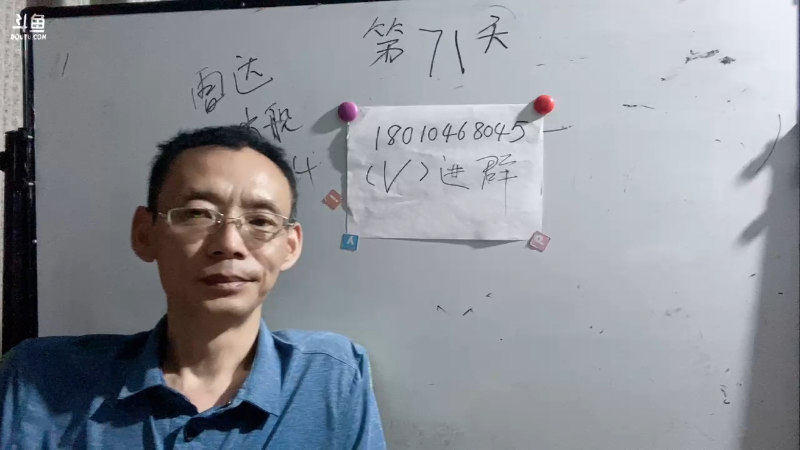 斗鱼
DOUYU.COM
第71天
雷达
战舰
4
18010468045
(V)进群